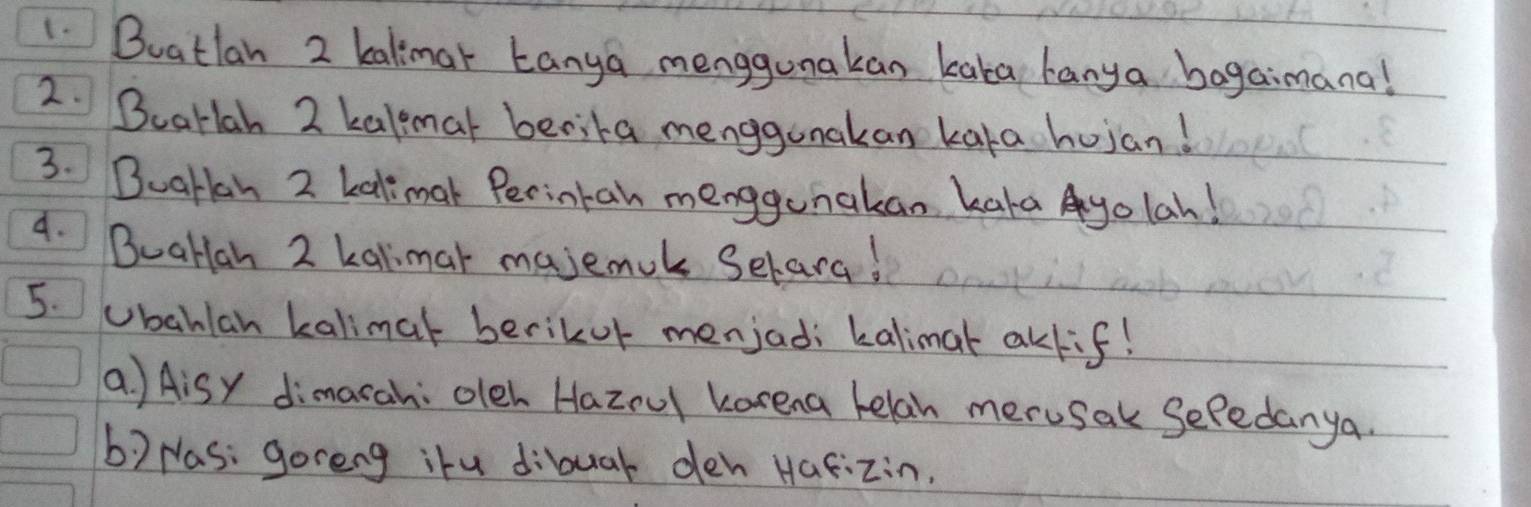 1. Buatlah 2 kalimat tanya menggunakan kata tanya bagaimana!
2. Buatlah 2 kalimat berita menggunakan kata hujan!
3. Buatlah 2 kalimat Perintah menggunakan kata Ayolah!
4. Buatlah 2 kalimat majemuk Setara!
5. Ubahlah kalimat berikut menjadi kalimat aktif!
a.) Aisy dimarahi oleh Hazrul karena telah merusak Sepedanya.
b.) Nasi goreng itu dibuat oleh Hafizin.